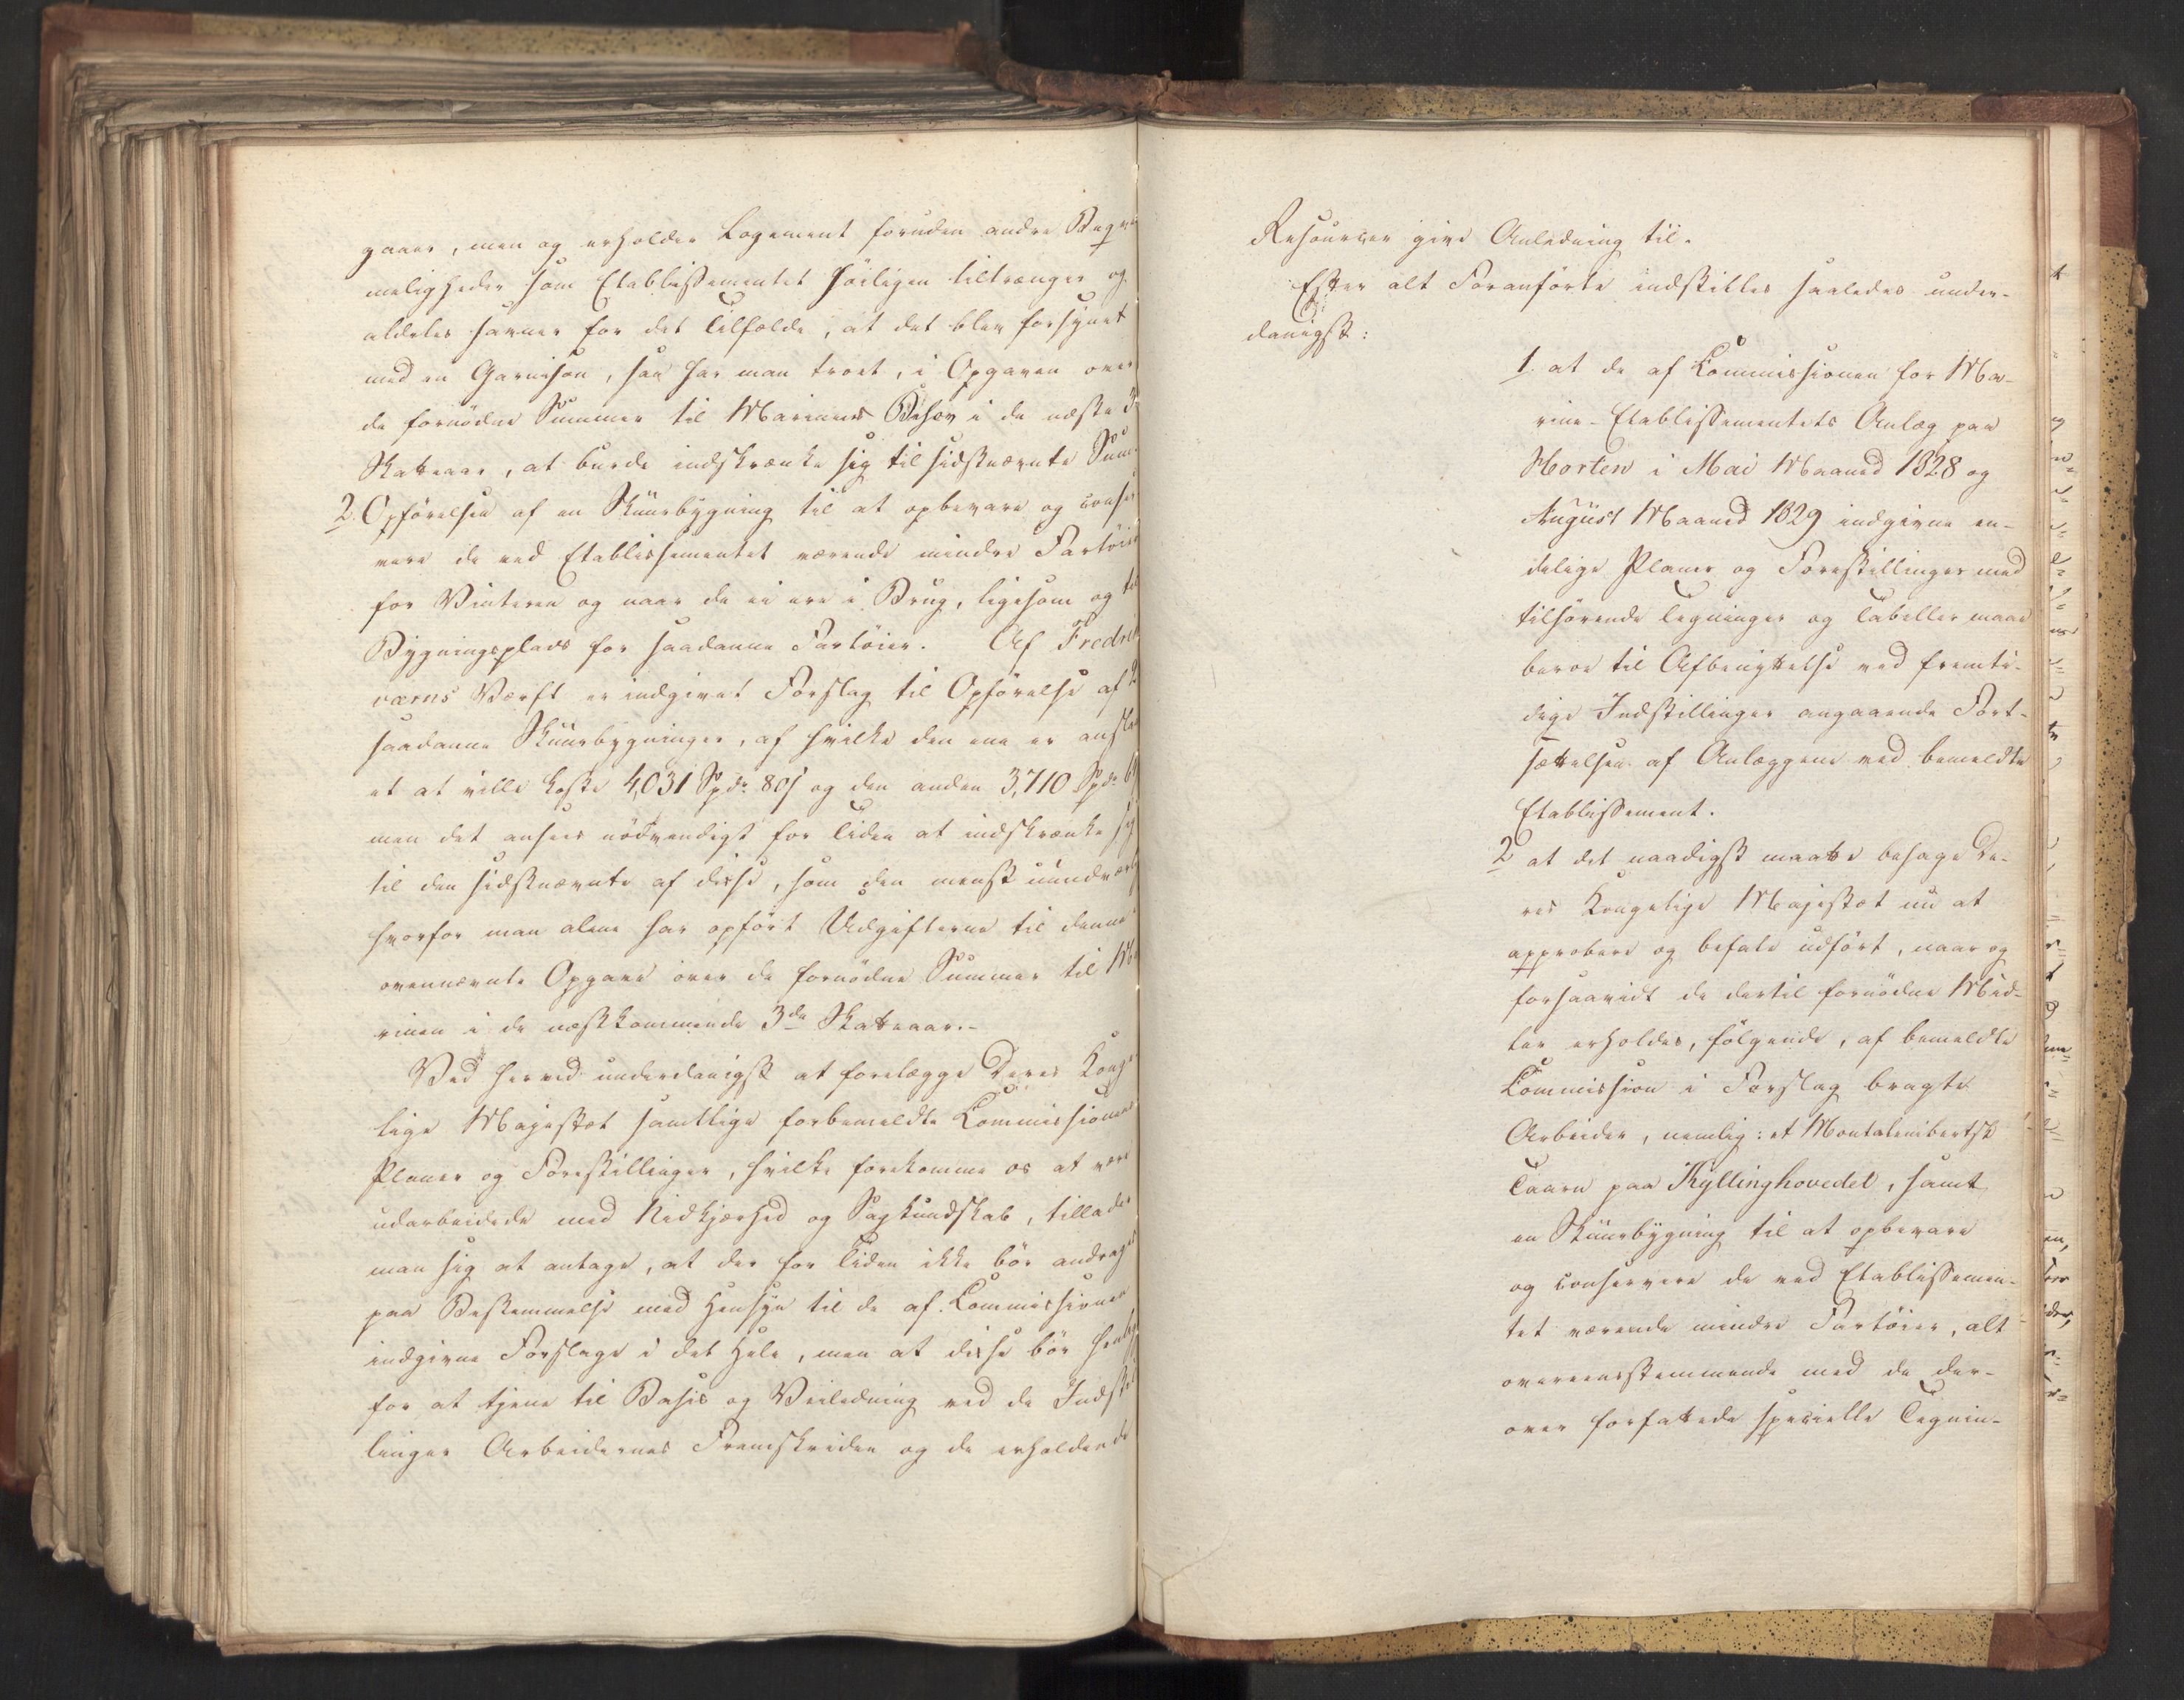 gaaer, men og erholder Logement foruden andre Beqve
meligheder som Etablissementet höiligen tiltrænger og
aldeles savner for det Tilfælde, at det blev forsynet
med en Garnison, saa har man troet, i Opgaven over
de fornödne Summer til Marinens Behov i de næste 3
Skatteaar, at burde indskrænke sig til sidstnævnte Sum.
2. Opförelsen af en Skuurbygning til at opbevare og conser
vere de ved Etablissementet værende mindre Fartöier
for Vinteren og naar de ei ere i Brug, ligesom og til
Bygningsplads for saadanne Fartöier. Af Fredriks
værns Værft er indgivet Forslag til Opförelse af 2
saadanne Skuurbygninger, af hvilke den ene er ansla
et at ville koste 4,031 Spdr 80 s og den anden 3,710 Spdr
men det ansees nödvendigt for Tiden at indskrænke sig
til den sidstnævnte af disse, som den meest uundværl
hvorfor man alene har opfört Udgifterne til denne
ovennævnte Opgave over de fornödne Summer til Ma
rinen i de næstkommende 3de Skatteaar.-
Ved herved underdanigst at forelægge Deres Konge
lige Majestæt samtlige forbemeldte Commissionens
Planer og Forestillinger, hvilke forekomme os at være
udarbeidede med Nidkjærhed og Sagkundskab, tillader
man sig at antage, at der for Tiden ikke bör andrages
paa Bestemmelse med Hensyn til de af Commissionen
indgivne Forslage i det Hele, men at disse bör henligge
for at tjene til Basis og Veiledning ved de Indstil
linger Arbeidernes Fremskriden og de erholdende
Resourcer give Anledning til.
Efter alt Foranförte indstilles saaledes under-
danigst:
1. at de af Commissionen for Ma-
rine-Etablissementets Anlæg paa
Horten i Mai Maaned 1828 og
August Maaned 1829 indgivne en-
delige Planer og Forestillinger med
tilhörende Tegninger og Tabeller maae
beroe til Afbenyttelse ved fremti-
dige Indstillinger angaaende Fort-
sættelsen af Anlæggene ved bemeldte
Etablissement.
2 at det naadigst maatte behage De-
res Kongelige Majestæt nu at
approbere og befale udfört, naar og
forsaavidt de dertil fornödne Mid-
ler erholdes, fölgende, af bemeldte
Commission i Forslag bragte
Arbeider, nemlig: et Montalembertsk
Taarn paa Kyllinghovedet, samt
en Skuurbygning til at opbevare
og conservere de ved Etablissemen-
tet værende mindre Fartöier, alt
overeensstemmende med de der-
over forfattede specielle Tegnin-